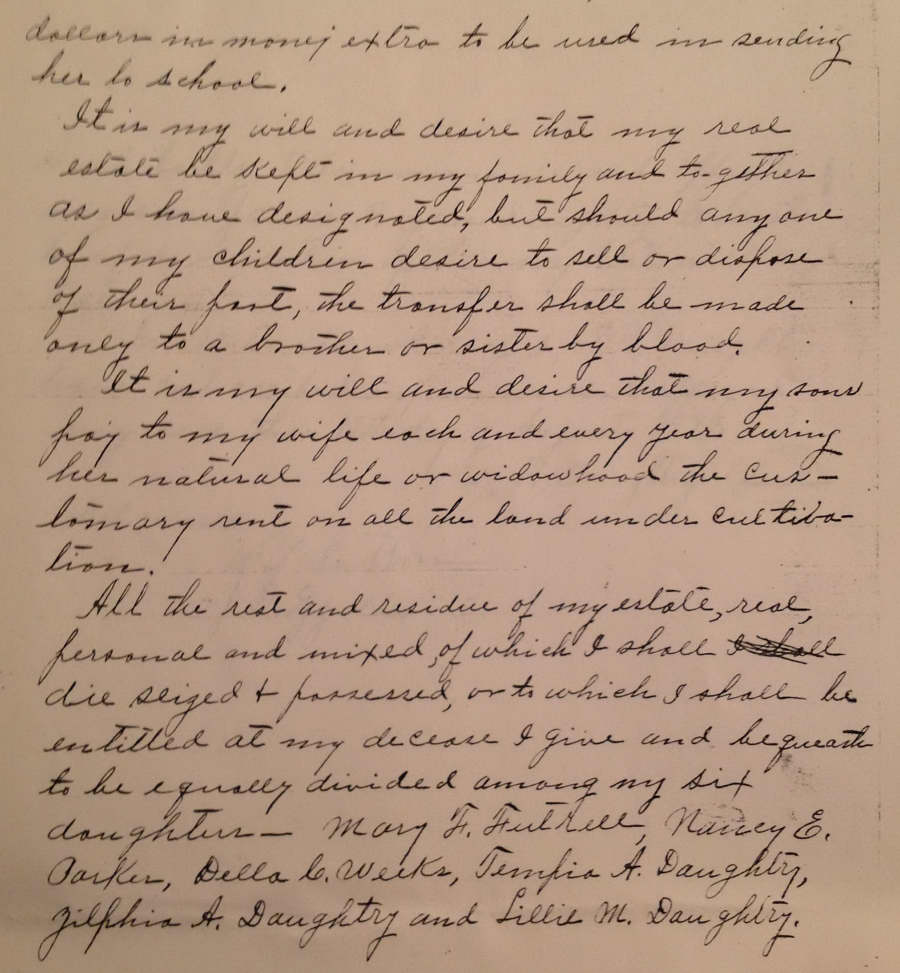 dollars in money extra to be used in sending
her to school.
It is my will and desire that my real
estate be kept in my family and to-gether
as I have designated, but should any one
of my children desire to sell or dispose
of their part, the transfer shall be made
only to a brother or sister by blood.
It is my will and desire that my sons
pay to my wife each and every year during
her natural life or widowhood the cus-
tomary rent on all the land under cultiva-
tion.
All the rest and residue of my estate, real,
personal and mixed, of which I shall I shall
die seized & possessed, or to which I shall be
entitled at my decease I give and bequeath
to be equally divided among my six
daughters— Mary F. Futrell, Nancy E.
Parker, Della C. Weeks, Tempia A. Daughtry,
Zilphia A. Daughtry and Lillie M. Daughtry.